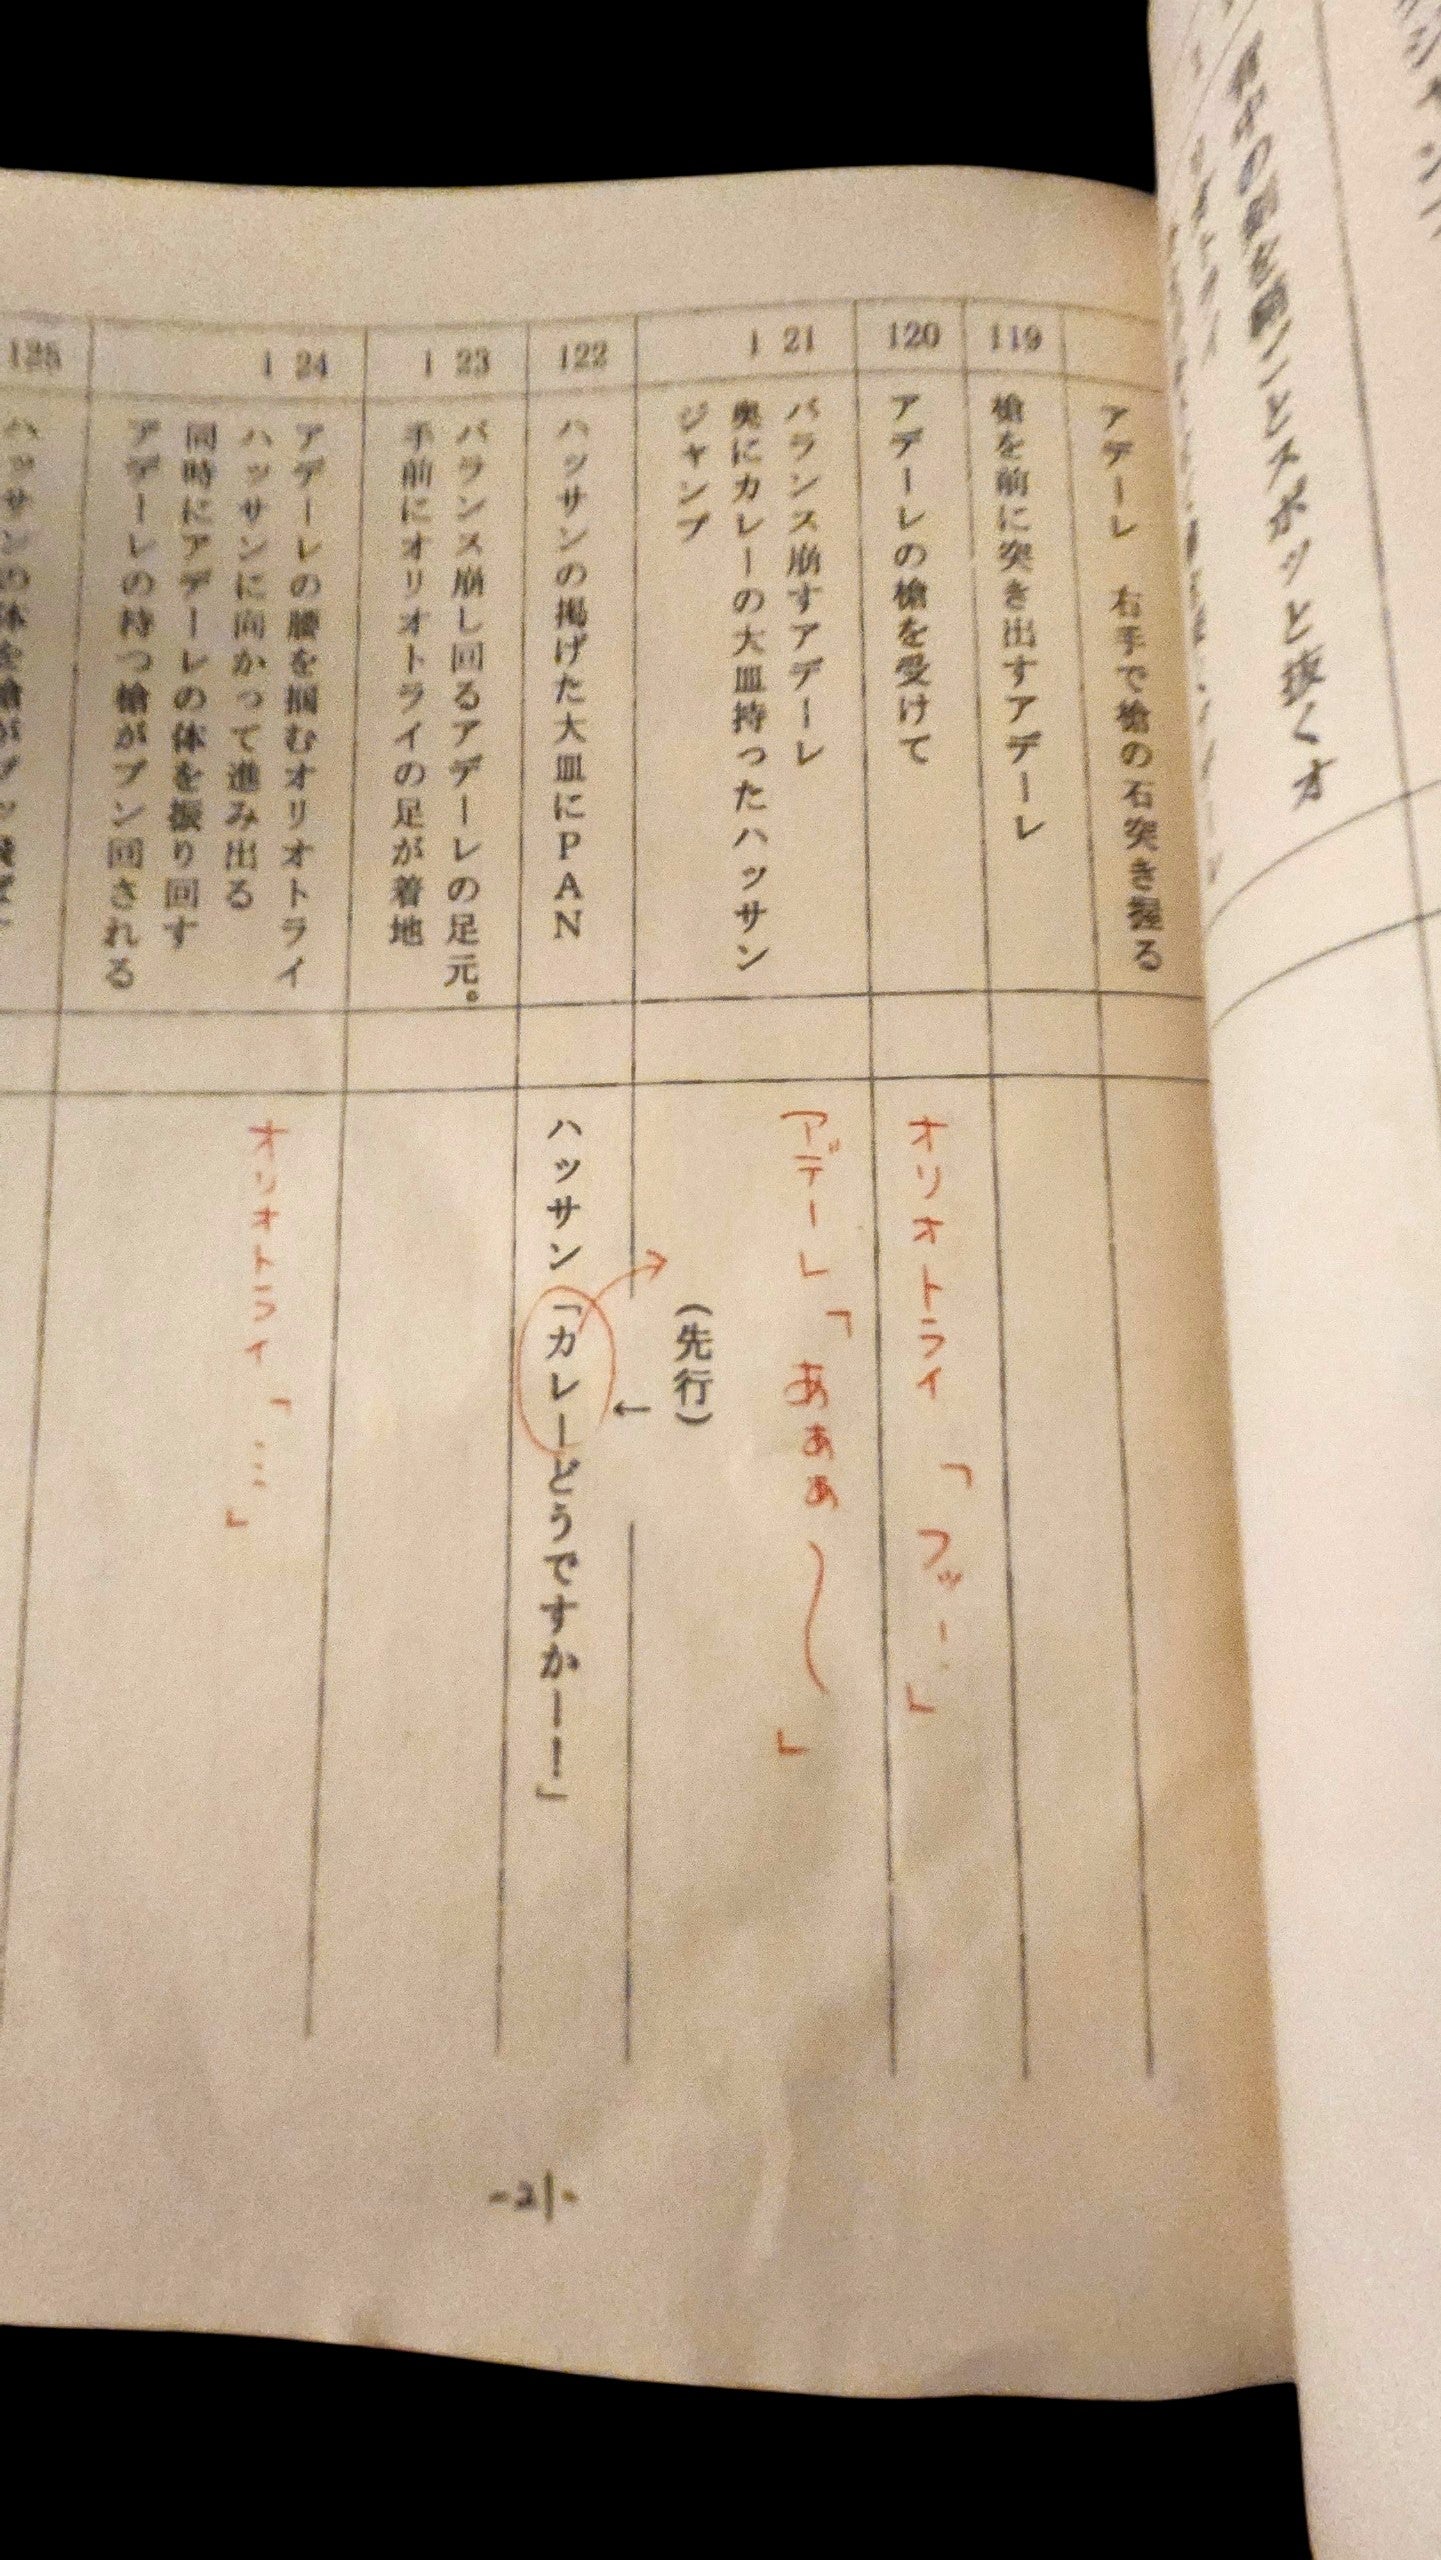 アデーレ　右手で槍の石突き握る
119
槍を前に突き出すアデーレ
120
アデーレの槍を受けて
オリオトライ「フッ…」
121
バランス崩すアデーレ
奥にカレーの大皿持ったハッサン
ジャンプ
アデーレ「あぁぁ～」
(先行)
←
122
ハッサンの掲げた大皿にPAN
ハッサン「カレーどうですかー！」
123
バランス崩し回るアデーレの足元。
手前にオリオトライの足が着地
124
アデーレの腰を掴むオリオトライ
ハッサンに向かって進み出る
同時にアデーレの体を振り回す
アデーレの持つ槍がブン回される
オリオトライ「…」
125
-21-